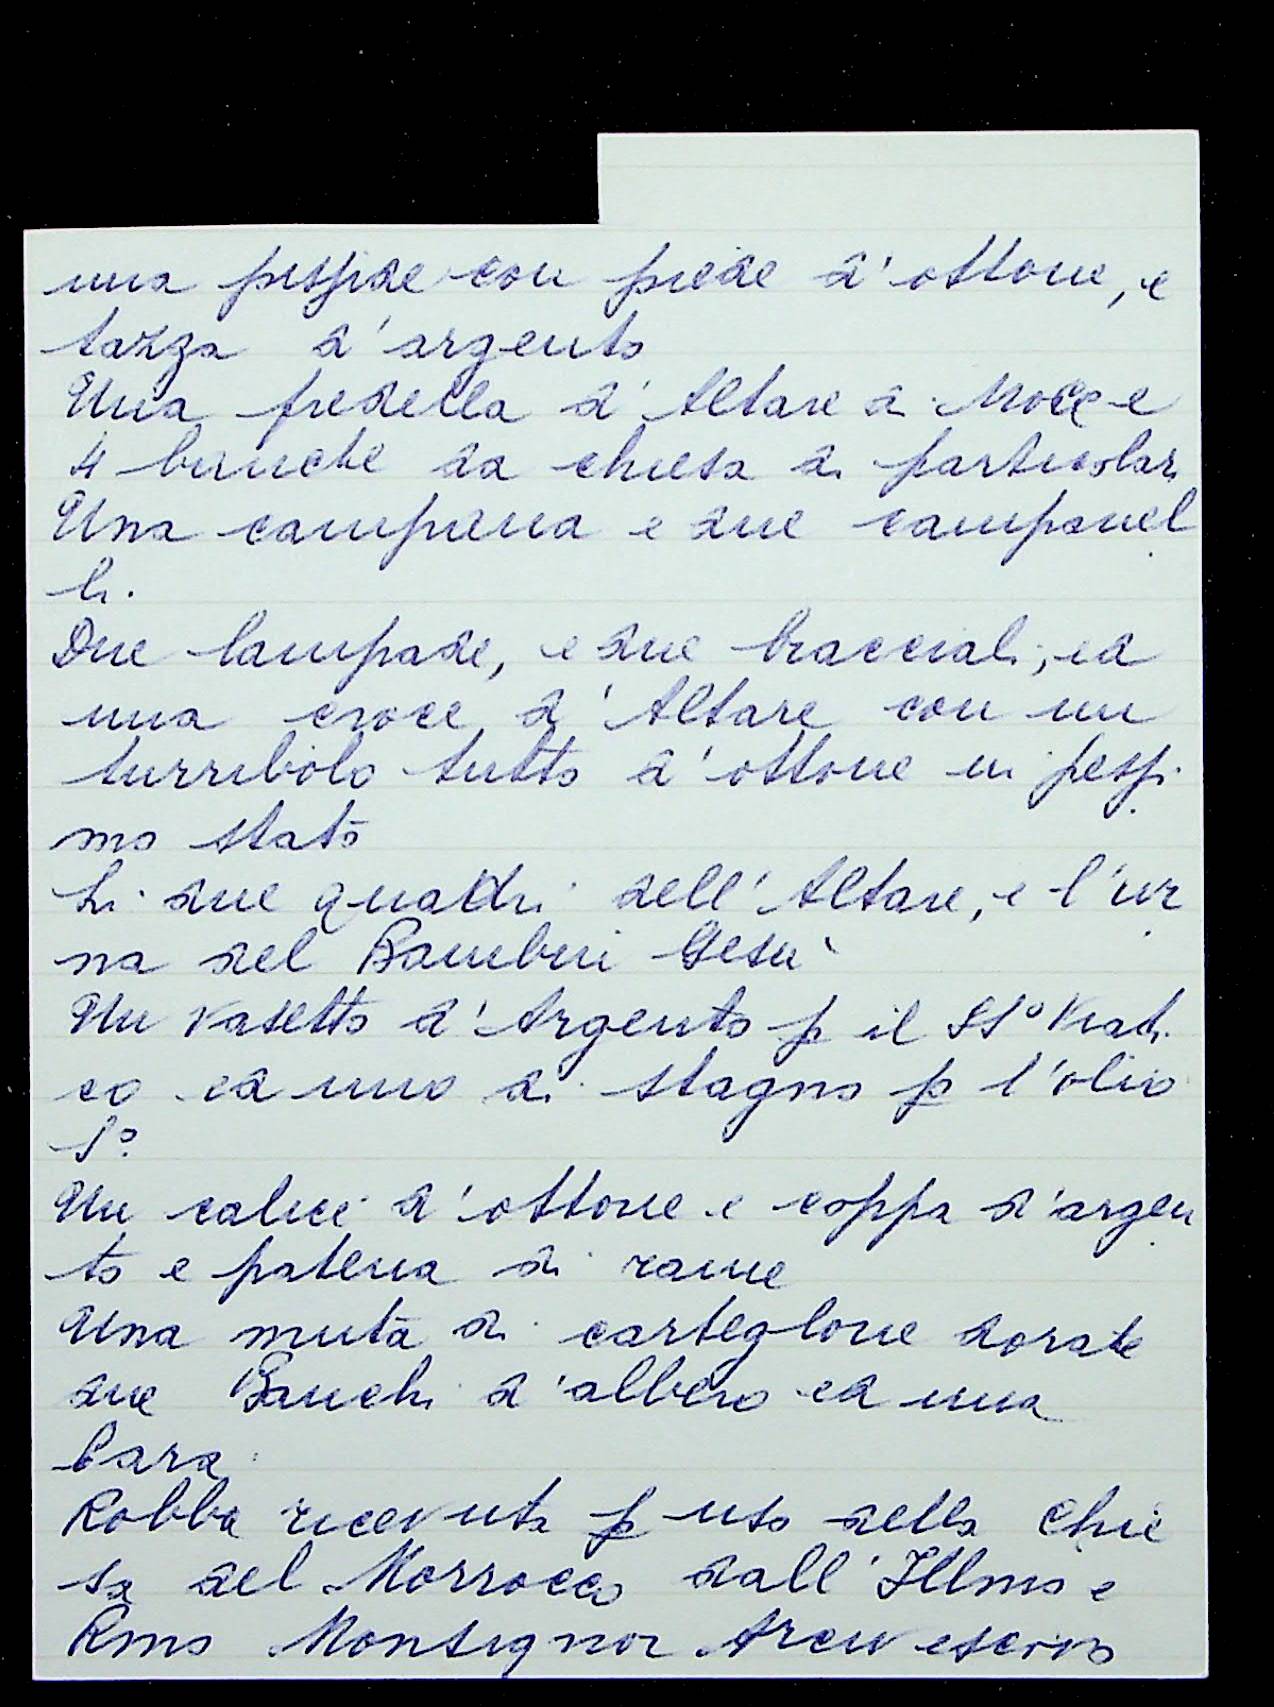 una pisside con piede d'ottone, e
tazza d'argento
Una predella d'Altare di Noce e
4 banche da chiesa di particolari
Una campana e due campanel
li.
Due lampade, e due bracciali, ed
una croce d'Altare con un
turribolo tutto d'ottone in pessi
mo stato
Li due quadri dell'Altare, e l'ur
na del Bambin Gesù
Un vasetto d'Argento p il SS° Viati
co ed uno di stagno p l'olio
S°
Un calice d'ottone e coppa d'argen
to e patena di rame
Una muta di carteglorie dorate
due Banchi d'albero ed una
bara
Robba ricevuta p uso della Chie
sa del Morrocco dall'Illmo e
Rmo Monsignor Arcivescovo